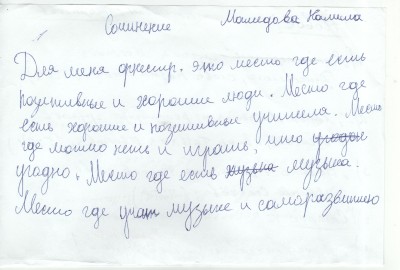 Сочинение Мамедова Камила
Для меня оркестр. это место где есть
позитивные и хорошие люди. Место где
есть хорошие и позетивные учителя. Место
где можно петь и играть, что угодн
угодно. Место где есть музыка музыка.
Место где учат музыке и саморазвитию